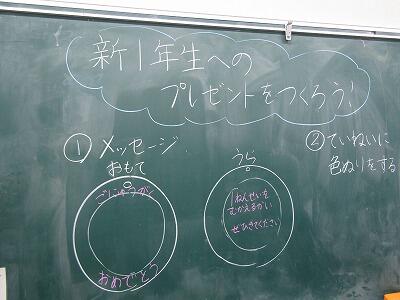 新1年生への
プレゼントをつくろう!
① メッセージ
おもて
ごにゅうがく
おめでとう
うら
1ねんせいを
むかえるかい
ぜひきてください
② ていねいに
色ぬりをする